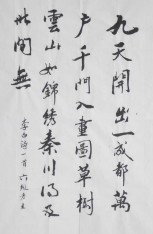 九天開出一成都萬
户千門入畫圖草樹
雲山如錦綉秦川得及
此間無
李白詩一首